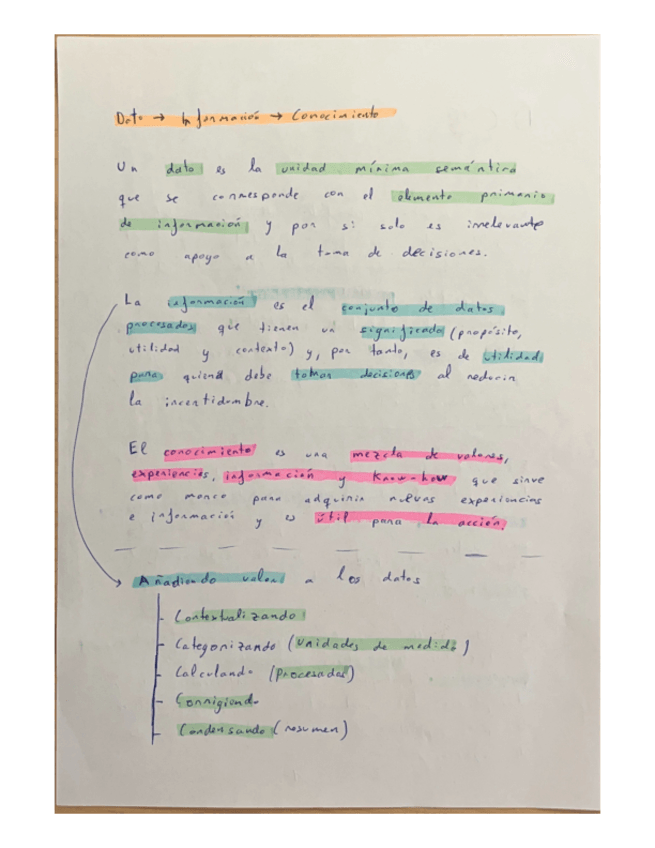 Dato → Información → Conocimiento
Un dato es la unidad mínima semántica
que se corresponde con el elemento primario
de información, y por si solo es irrelevante
como apoyo a la toma de decisiones.
La información es el conjunto de datos
procesados que tienen un significado (propósito,
utilidad y contexto) y, por tanto, es de utilidad
para quien debe tomar decisiones al reducir
la incertidumbre.
El conocimiento es una mezcla de valores,
experiencias, información y Know-how que sirve
como marco para adquirir nuevas experiencias
e información y es útil para la acción.
Añadiendo valor a los datos
Contextualizando
Categorizando (unidades de medida)
Calculando (Procesados)
Corrigiendo
Condensando (resumen)